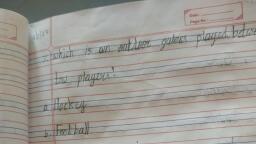 which is an outdoor games played betw
two players?
a. Hockey
b. Football